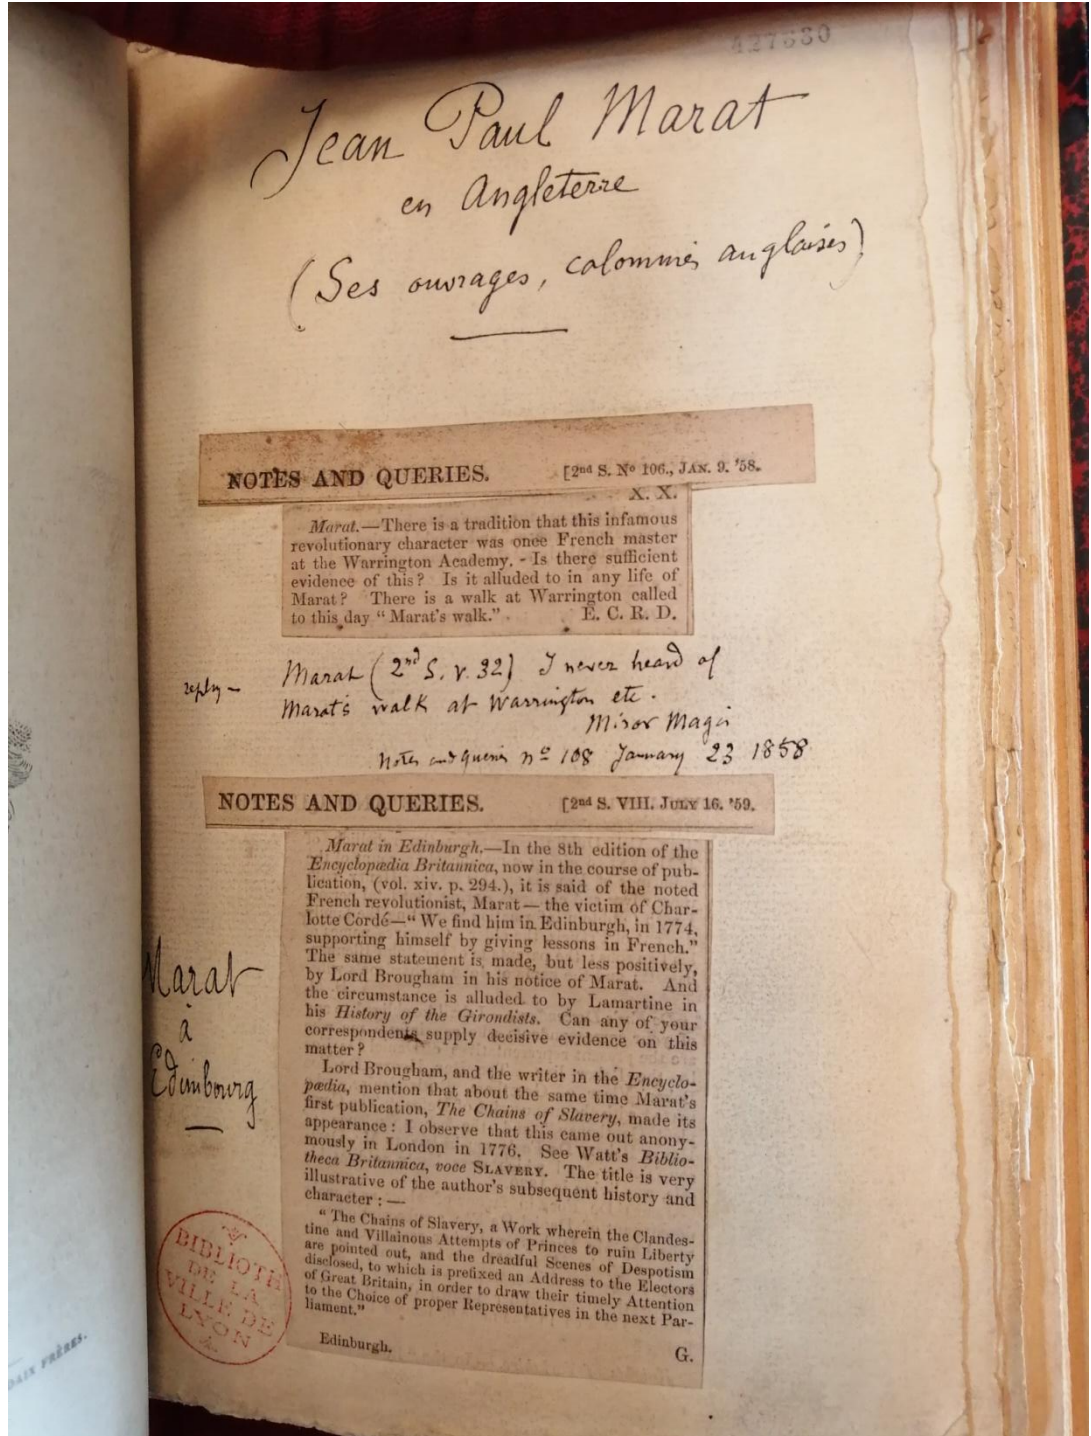 427330
Jean Paul Marat
en Angleterre
(Ses ouvrages, calomnies anglaises)
NOTES AND QUERIES. [2nd S. No 106., JAN. 9. '58.
X. X.
Marat.—There is a tradition that this infamous
revolutionary character was once French master
at the Warrington Academy. - Is there sufficient
evidence of this? Is it alluded to in any life of
Marat? There is a walk at Warrington called
to this day "Marat's walk." E. C. R. D.
reply — Marat (2nd S. v. 32) I never heard of
Marat's walk at Warrington etc.
Misor
Notes and Queries no 108 January 23 1858
NOTES AND QUERIES. [2nd S. VIII. JULY 16. '59.
Marat in Edinburgh.—In the 8th edition of the
Encyclopædia Britannica, now in the course of pub-
lication, (vol. xiv. p. 294.), it is said of the noted
French revolutionist, Marat — the victim of Char-
lotte Cordé—"We find him in Edinburgh, in 1774,
supporting himself by giving lessons in French."
The same statement is made, but less positively,
by Lord Brougham in his notice of Marat. And
the circumstance is alluded to by Lamartine in
his History of the Girondists. Can any of your
correspondents supply decisive evidence on this
matter?
Lord Brougham, and the writer in the Encyclo-
pædia, mention that about the same time Marat's
first publication, The Chains of Slavery, made its
appearance: I observe that this came out anony-
mously in London in 1776. See Watt's Biblio-
theca Britannica, voce SLAVERY. The title is very
illustrative of the author's subsequent history and
character: —
"The Chains of Slavery, a Work wherein the Clandes-
tine and Villainous Attempts of Princes to ruin Liberty
are pointed out, and the dreadful Scenes of Despotism
disclosed, to which is prefixed an Address to the Electors
of Great Britain, in order to draw their timely Attention
to the Choice of proper Representatives in the next Par-
liament."
Edinburgh. G.
Marat
à
Edimbourg
BIBLIOTH
DE LA
VILLE DE
LYON
FRÈRES.